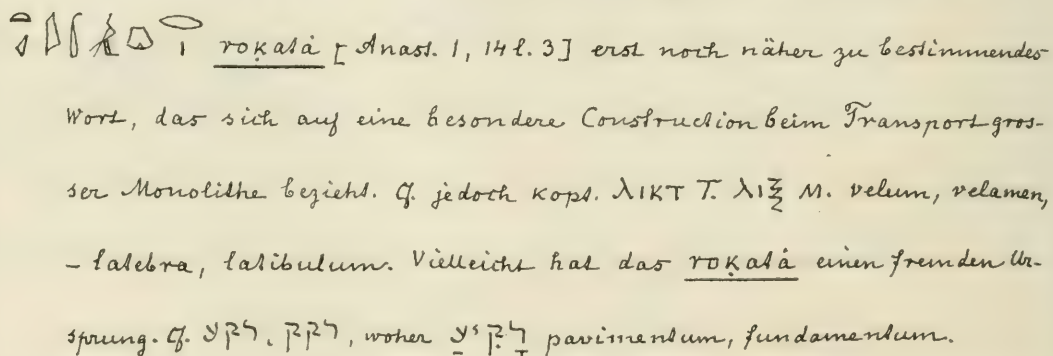 roḳatȧ [Anast. 1, 14 l. 3] erst noch näher zu bestimmendes
Wort, das sich auf eine besondere Construction beim Transport gros-
ser Monolithe bezieht. Cf. jedoch kopt. ⲗⲓⲕⲧ T. ⲗⲓⲝ M. velum, velamen,
– latebra, latibulum. Vielleicht hat das roḳatȧ einen fremden Ur-
sprung. Cf. רקע, רקק, woher רָקִיעַ pavimentum, fundamentum.